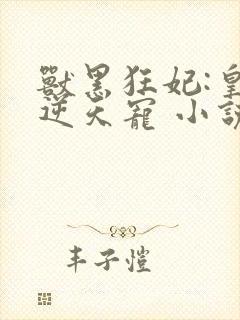 獸黑狂妃:皇
逆天寵 小說
丰子愷